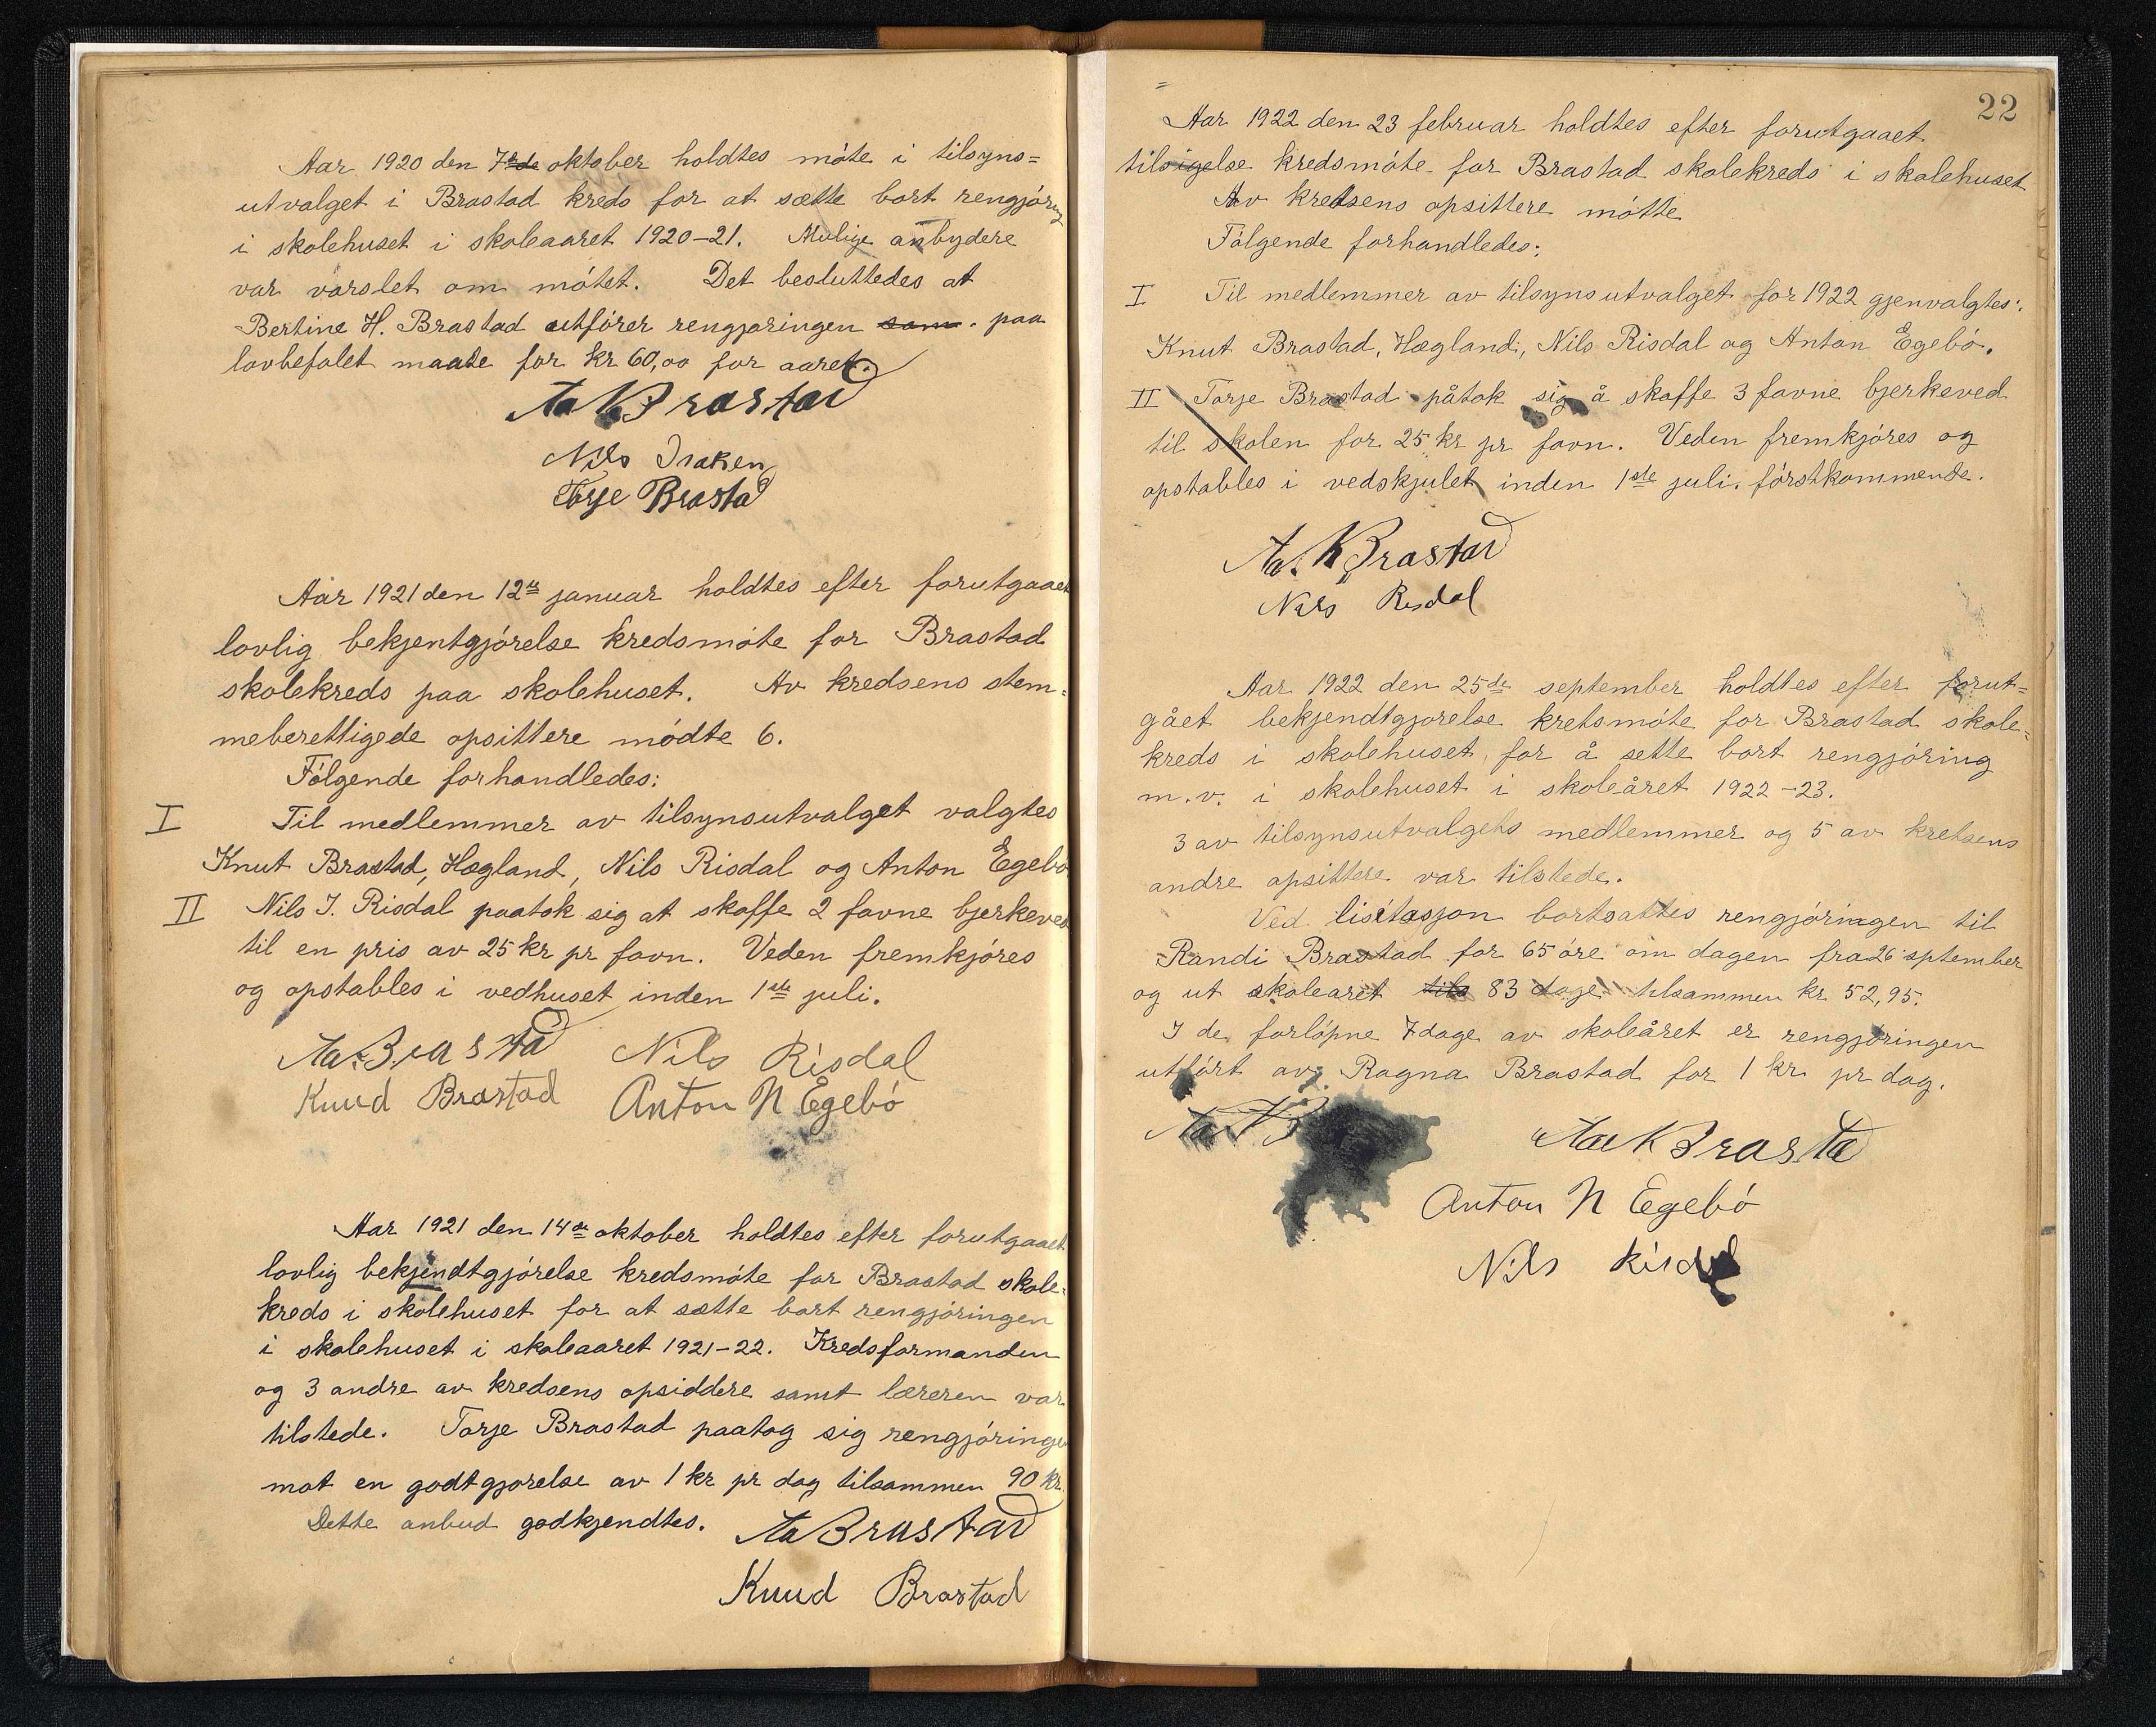 Aar 1920 den 7de oktober holdtes móte i tilsyns=
utvalget i Brastad kreds for at sætte bort rengjóring
i skolehuset i skoleaaret 1920–21. Mulige anbydere
var varslet om mótet. Det besluttedes at
Bertine H. Brastad utfórer rengjøringen som. paa
lovbefalet maate for kr 60,00 for aaret.
Aa K Brastad
Nils Isaksen
Torje Brastad
Aar 1921 den 12te januar holdtes efter forutgaaet
lovlig bekjentgjórelse kredsmóte for Brastad
skolekreds paa skolehuset. Av kredsens stem=
meberettigede opsittere módte 6.
Fólgende forhandledes:
I Til medlemmer av tilsynsutvalget valgtes
Knut Brastad, Hægland, Nils Risdal og Anton Egebó
II Nils I. Risdal paatok sig at skaffe 2 favne bjerkeved
til en pris av 25 kr pr favn. Veden fremkjóres
og opstables i vedhuset inden 1ste juli.
Aa. Brastad Nils Risdal
Knud Brastad Anton N Egebó
Aar 1921 den 14de oktober holdtes efter forutgaaet
lovlig bekjendtgjórelse kredsmóte for Brastad skole=
kreds i skolehuset for at sætte bort rengjóringen
i skolehuset i skoleaaret 1921–22. Kredsformanden
og 3 andre av kredsens opsiddere samt læreren var
tilstede. Torje Brastad paatog sig rengjóringen
mot en godtgjorelse av 1 kr pr dag tilsammen 90 kr.
Dette anbud godkjendtes. Aa Brastad
Knud Brastad
22
Aar 1922 den 23 februar holdtes efter forutgaaet
tilsigelse kredsmóte for Brastad skolekreds i skolehuset
Av kredsens opsittere mótte
Fólgende forhandledes:
I Til medlemmer av tilsynsutvalget for 1922 gjenvalgtes:
Knut Brastad, Hægland, Nils Risdal og Anton Egebó.
II Torje Brastad påtok sig å skaffe 3 favne bjerkeved
til skolen for 25 kr pr favn. Veden fremkjóres og
opstables i vedskjulet inden 1ste juli. fórstkommende.
Aa. K Brastad
Nils Risdal
Aar 1922 den 25de september holdtes efter forut=
gået bekjendtgjorelse kretsmóte for Brastad skole=
kreds i skolehuset for å sette bort rengjóring
m.v. i skolehuset i skoleåret 1922–23.
3 av tilsynsutvalgets medlemmer og 5 av kretsens
andre opsittere var tilstede.
Ved lisitasjon bortsattes rengjóringen til
Randi Brastad for 65 óre om dagen fra 26 sptember
og ut skolearet tils 83 dage tilsammen kr 52,95.
I de forlópne 7 dage av skoleåret er rengjóringen
utfórt av Ragna Brastad for 1 kr pr dag.
Aa K B
Aa K Brastad
Anton N Egebó
Nils Risdal